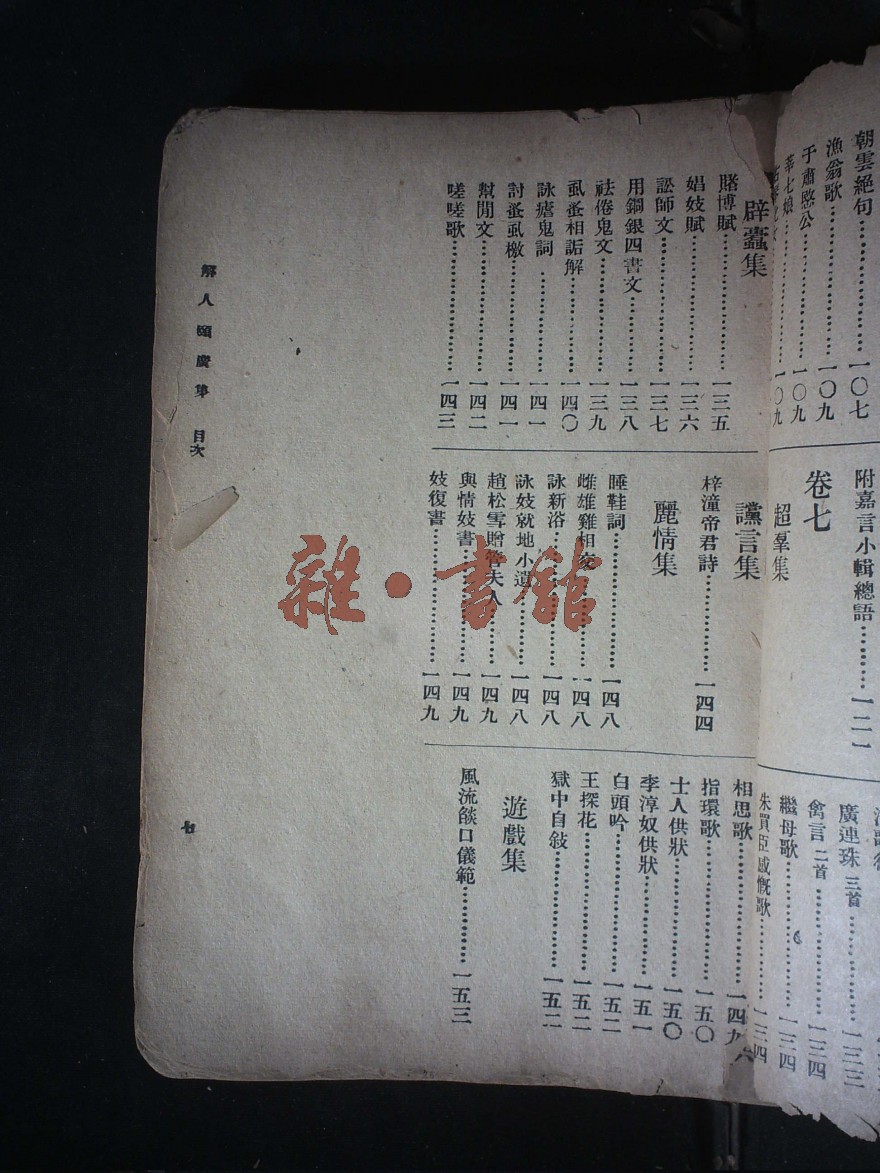 朝雲絕句……一〇七
漁翁歌……一〇九
于肅愍公……一〇九
莘七娘……一〇九
附嘉言小輯總語……一二一
卷七
超羣集
廣連珠 三首……一三三
禽言 二首……一三四
繼母歌……一三四
朱買臣感慨歌……一三四
辟蠹集
賭博賦……一三五
娼妓賦……一三六
訟師文……一三七
用銅銀四書文……一三八
祛倦鬼文……一三九
虱蚤相詬解……一四〇
詠瘧鬼詞……一四一
討蚤虱檄……一四一
幫閒文……一四二
嗟嗟歌……一四三
讜言集
梓潼帝君詩……一四四
麗情集
睡鞋詞……一四八
雌雄雞相交……一四八
詠新浴……一四八
詠妓就地小遺……一四八
趙松雪贈管夫人……一四九
與情妓書……一四九
妓復書……一四九
相思歌……一四九
指環歌……一五〇
士人供狀……一五〇
李淳奴供狀……一五一
白頭吟……一五二
王探花……一五二
獄中自敍……一五二
遊戲集
風流燄口儀範……一五三
解人頤廣集 目次
七
雜·書館